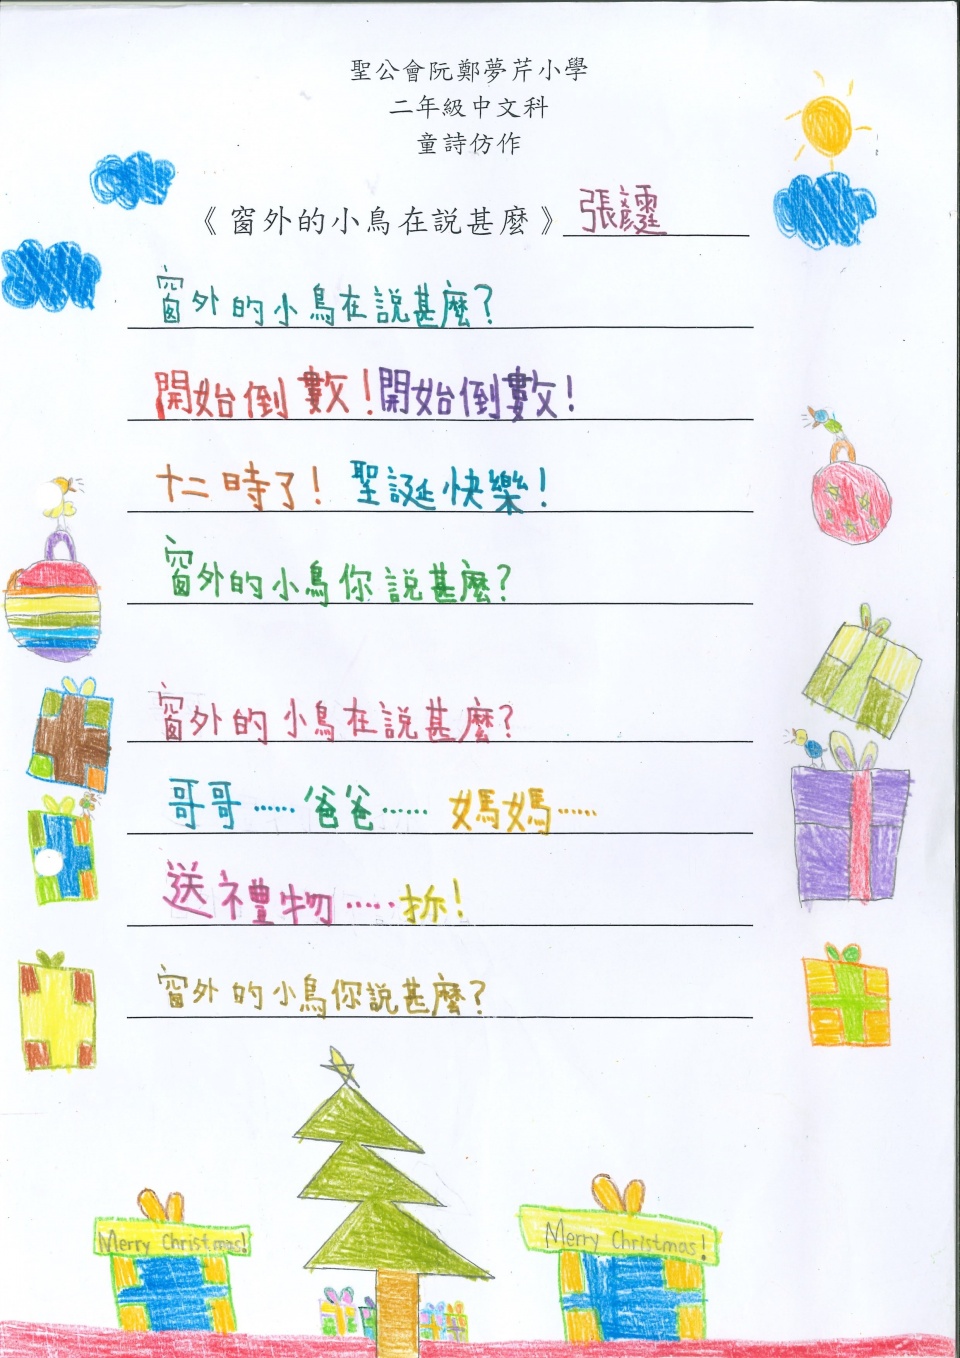 聖公會阮鄭夢芹小學
二年級中文科
童詩仿作
《窗外的小鳥在說甚麼》 張
窗外的小鳥在說甚麼?
開始倒數!開始倒數!
十二時了! 聖誕快樂!
窗外的小鳥你說甚麼?
窗外的小鳥在說甚麼?
哥哥……爸爸…… 媽媽……
送禮物……拆!
窗外的小鳥你說甚麼?
Merry Christmas!
Merry Christmas!